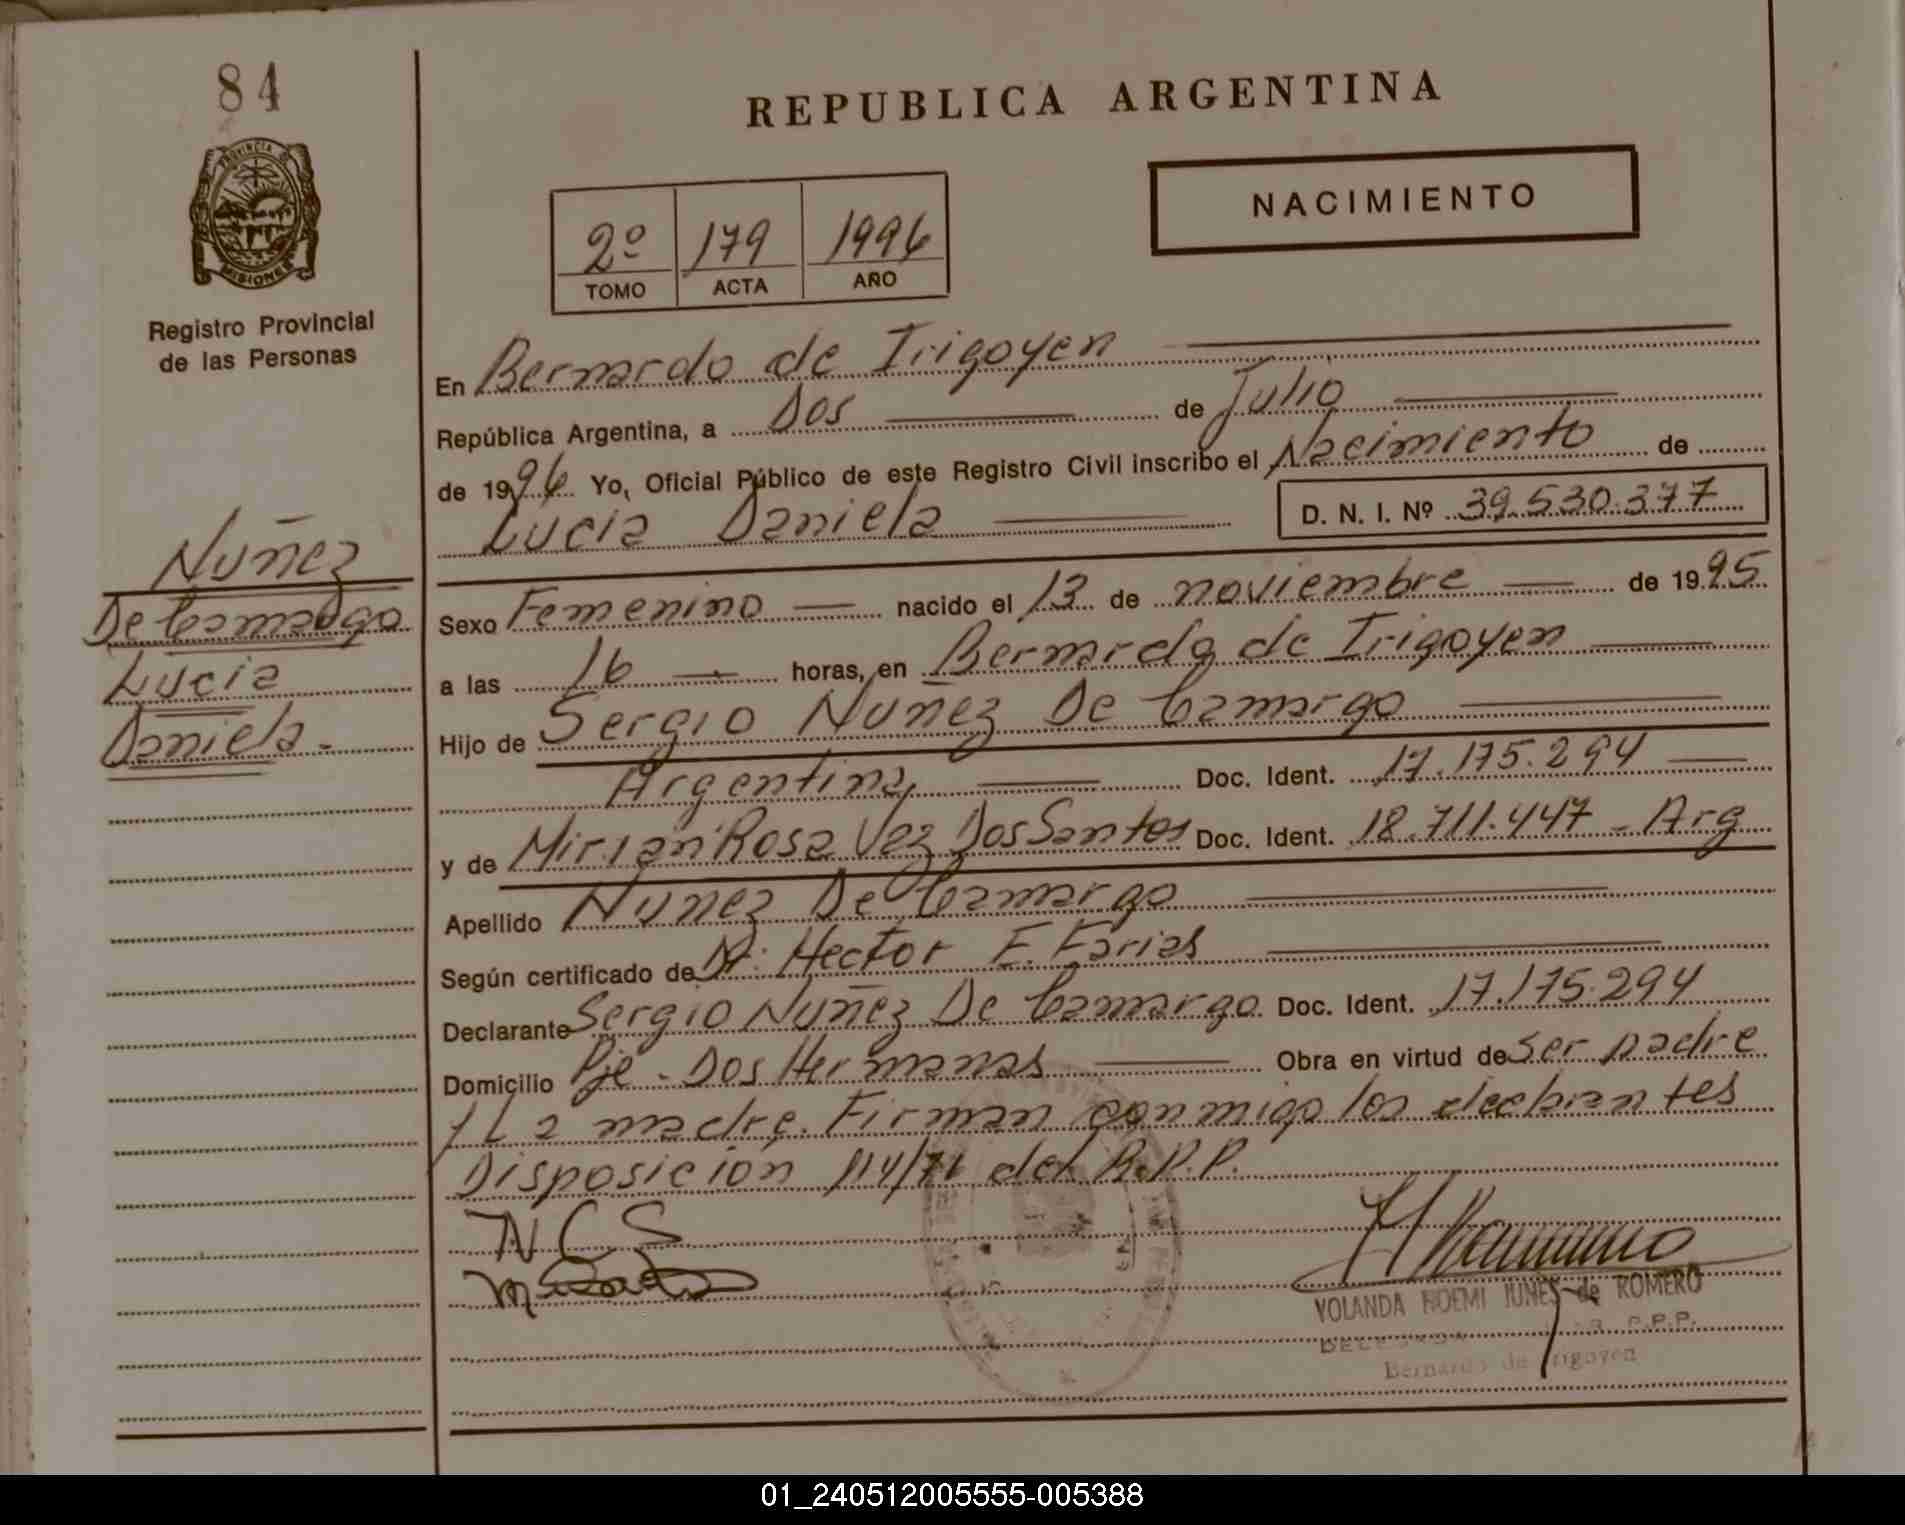 84
REPUBLICA ARGENTINA
PROVINCIA DE
MISIONES
Registro Provincial
de las Personas
NACIMIENTO
2º 179 1996
TOMO ACTA AÑO
En Bernardo de Irigoyen
República Argentina, a Dos de Julio
de 1996 Yo, Oficial Público de este Registro Civil inscribo el Nacimiento de
Lucia Daniela D. N. I. Nº 39.530.377
Nuñez
De Camargo
Lucia
Daniela.-
Sexo Femenino nacido el 13 de noviembre de 1995
a las 16 horas, en Bernardo de Irigoyen
Hijo de Sergio Nuñez De Camargo
Argentina Doc. Ident. 17.175.294
y de Mirian Rosa Vaz Dos Santos Doc. Ident. 18.711.447 - Arg
Apellido Nunez De Camargo
Según certificado de Dr. Hector E. Farias
Declarante Sergio Nuñez De Camargo Doc. Ident. 17.175.294
Domicilio Pje - Dos Hermanas Obra en virtud de ser padre
y La madre. Firman conmigo los
Disposición 114/71 del R.P.P.
N C S
YOLANDA NOEMI JUNES de ROMERO
R.P.P.
Bernardo de Irigoyen
01_240512005555-005388